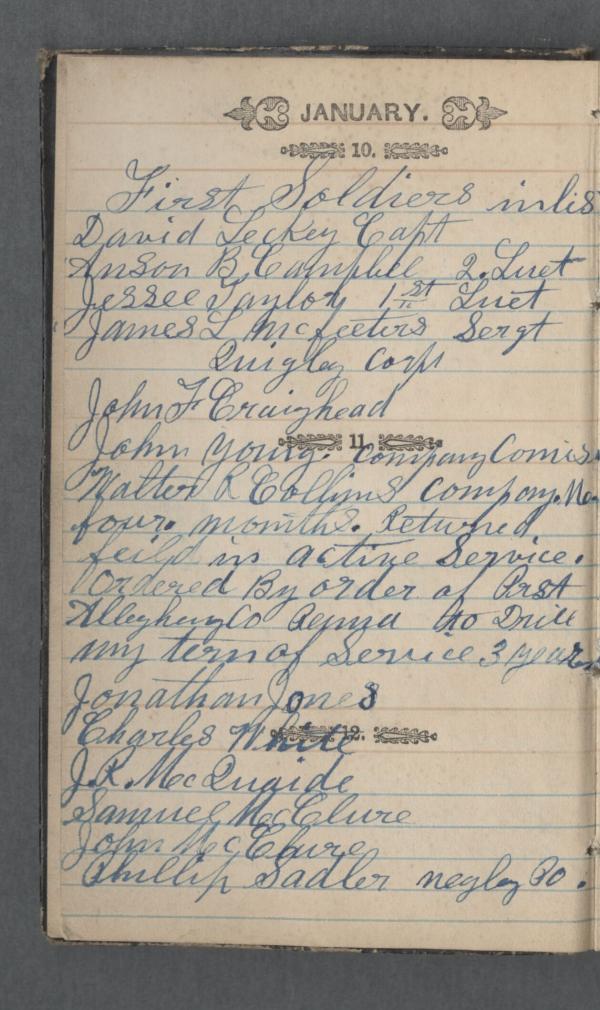 JANUARY.
10.
First Soldiers inlis
David Leckey Capt
Anson B. Campbell 2. Luet
Jessee Taylor 1st Luet
James L McFeeters Sergt
Quigley Corp
John F Craighead
11.
John Young. Company Comis
Walter R Collins Company.
four. months. Returned
feild in active Service.
Ordered By order of
Allegheny Co Penna to Drill
my term of Service 3 years
Jonathan Jones
12.
Charles White
J. R. McQuaide
Samuel McClure
John McClure
Phillip Sadler negley Co.